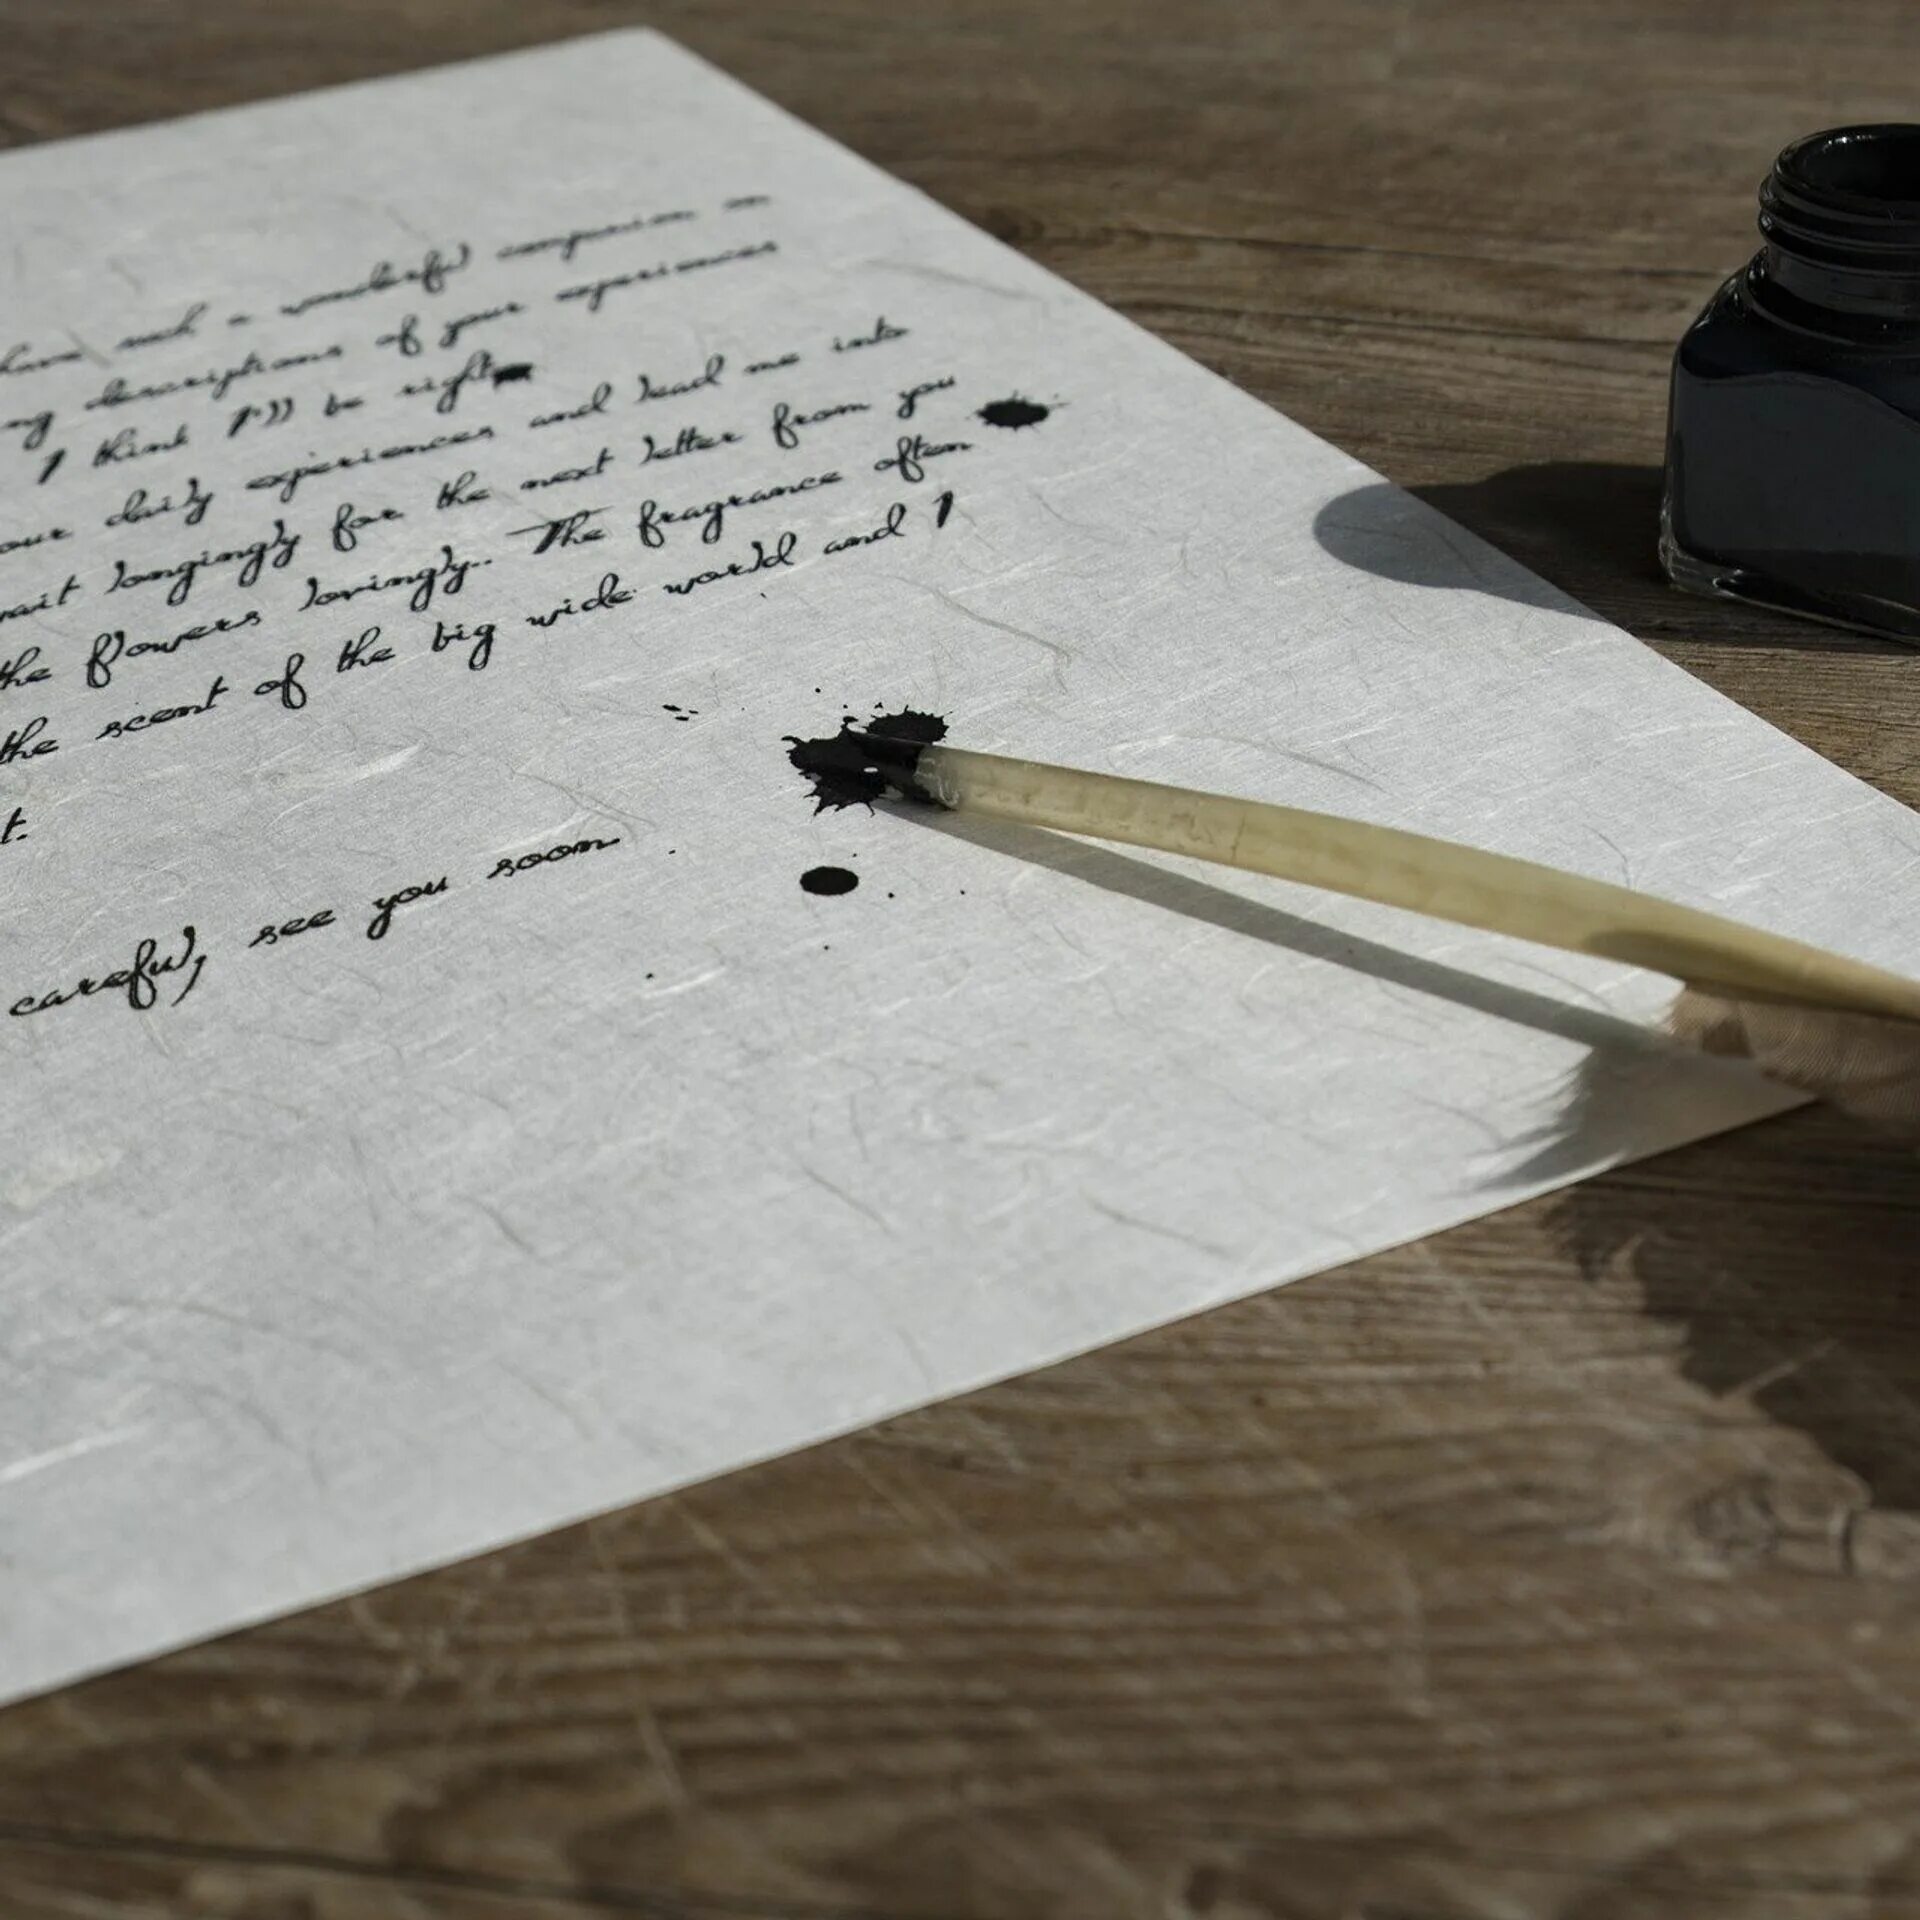 have such a wonderful companion in
ng descriptions of your experiences
I think I'll be right
our daily experiences and lead me into
wait longingly for the next letter from you
the flowers lovingly.. The fragrance often
the scent of the big wide world and I
t.
careful, see you soon